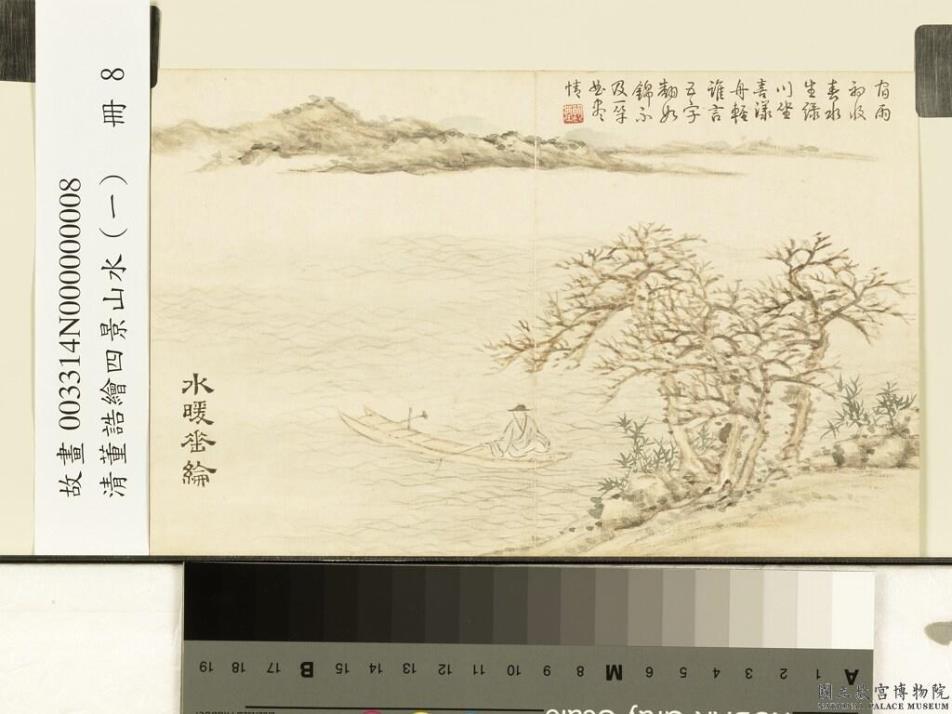 故畫 003314N000000008
清董誥繪四景山水（一） 冊 8
宿雨
初收
春水
生綠
川坐
喜漾
舟輕
誰言
五字
翻如
錦不
及一竿
情
水暖垂綸
A 1 2 3 4 5 6 M 8 9 10 11 12 13 14 15 B 17 18 19
國立故宮博物院
NATIONAL PALACE MUSEUM